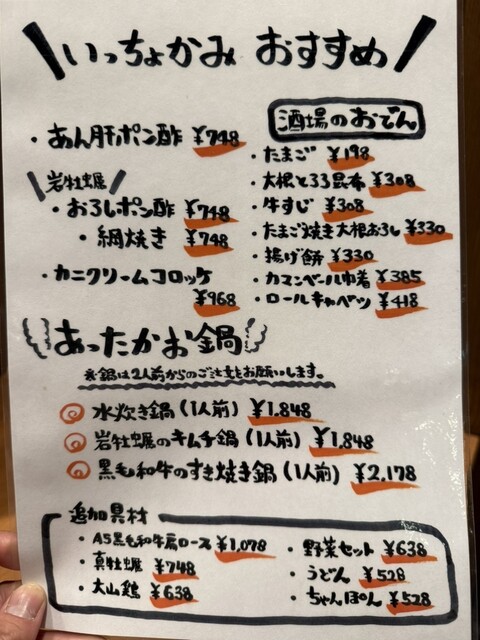 いっちょかみ おすすめ
・あん肝ポン酢 ¥748
岩牡蠣
・おろしポン酢 ¥748
・網焼き ¥748
・カニクリームコロッケ
¥968
酒場のおでん
・たまご ¥198
・大根とろろ昆布 ¥308
・牛すじ ¥308
・たまご焼き大根おろし ¥330
・揚げ餅 ¥330
・カマンベール巾着 ¥385
・ロールキャベツ ¥418
あったかお鍋
※鍋は2人前からのご注文をお願いします。
水炊き鍋(1人前) ¥1,848
岩牡蠣のキムチ鍋(1人前) ¥1,848
黒毛和牛のすき焼き鍋(1人前) ¥2,178
追加具材
・A5黒毛和牛肩ロース ¥1,078
・真牡蠣 ¥748
・大山鶏 ¥638
・野菜セット ¥638
・うどん ¥528
・ちゃんぽん ¥528